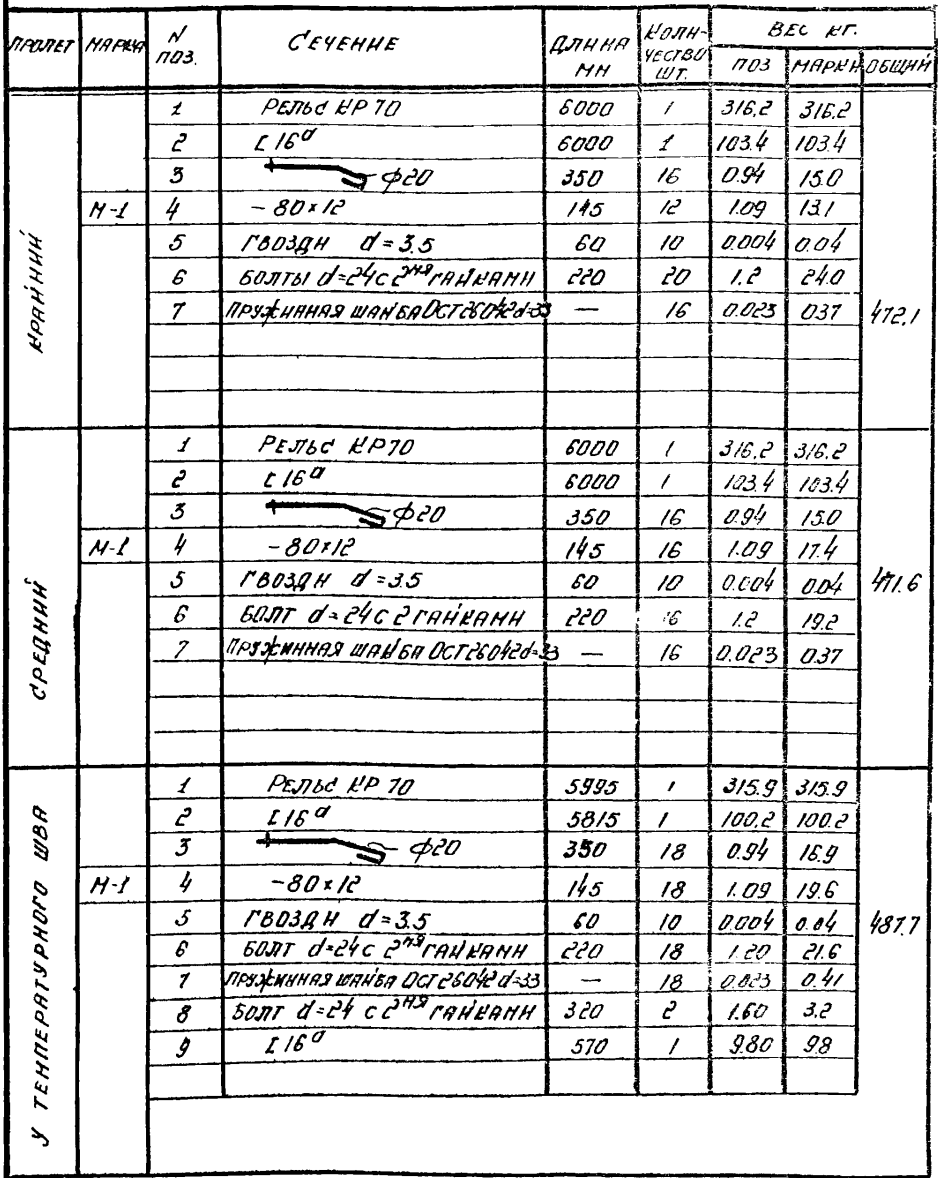 ПРОЛЕТ МАРКА N ПОЗ. СЕЧЕНИЕ ДЛИНА ММ КОЛИЧЕСТВО ШТ. ВЕС КГ.
ПОЗ МАРКИ ОБЩИЙ
КРАЙНИЙ М-1 472.1
1 РЕЛЬС КР 70 6000 1 316.2 316.2
2 [ 16а 6000 1 103.4 103.4
3 ф20 350 16 0.94 15.0
4 - 80×12 145 12 1.09 13.1
5 ГВОЗДИ d = 3.5 60 10 0.004 0.04
6 БОЛТЫ d=24 С 2МЯ ГАЙКАМИ 220 20 1.2 24.0
7 ПРУЖИННАЯ ШАЙБА ОСТ 26042 d=33 — 16 0.023 037
СРЕДНИЙ М-1 471.6
1 РЕЛЬС КР70 6000 1 316.2 316.2
2 [ 16а 6000 1 103.4 103.4
3 ф20 350 16 0.94 15.0
4 - 80×12 145 16 1.09 17.4
5 ГВОЗДИ d = 3.5 60 10 0.004 0.04
6 БОЛТ d=24 С 2 ГАЙКАМИ 220 16 1.2 19.2
7 ПРУЖИННАЯ ШАЙБА ОСТ 26042 d=33 — 16 0.023 0.37
У ТЕМПЕРАТУРНОГО ШВА М-1 487.7
1 РЕЛЬС КР 70 5995 1 315.9 315.9
2 [ 16а 5815 1 100.2 100.2
3 ф20 350 18 0.94 16.9
4 - 80×12 145 18 1.09 19.6
5 ГВОЗДИ d = 3.5 60 10 0.004 0.04
6 БОЛТ d=24 С 2МЯ ГАЙКАМИ 220 18 1.20 21.6
7 ПРУЖИННАЯ ШАЙБА ОСТ 26042 d=33 — 18 0.023 0.41
8 БОЛТ d=24 С 2МЯ ГАЙКАМИ 320 2 1.60 3.2
9 [ 16а 570 1 9.80 9.8